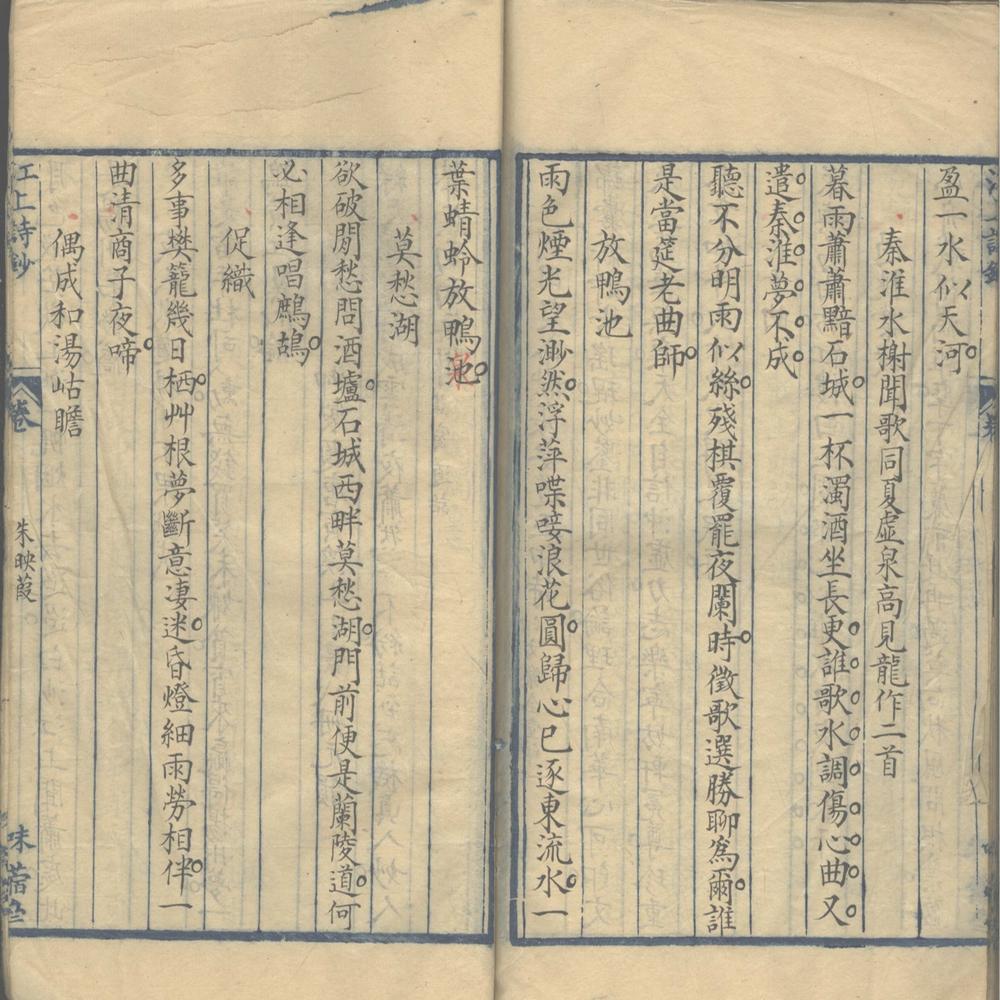 盈一水似天河
秦淮水榭聞歌同夏虛泉高見龍作二首
暮雨蕭蕭黯石城一杯濁酒坐長更誰歌水調傷心曲又
遣秦淮夢不成
聽不分明雨似絲殘棋覆罷夜闌時徵歌選勝聊爲爾誰
是當筵老曲師
放鴨池
雨色煙光望渺然浮萍喋唼浪花圓歸心已逐東流水一
葉蜻蛉放鴨池
莫愁湖
欲破閒愁問酒壚石城西畔莫愁湖門前便是蘭陵道何
必相逢唱鷓鴣
促織
多事樊籠幾日栖艸根夢斷意凄迷昏燈細雨勞相伴一
曲清商子夜啼
偶成和湯岵瞻
江上詩鈔
卷
朱映葭